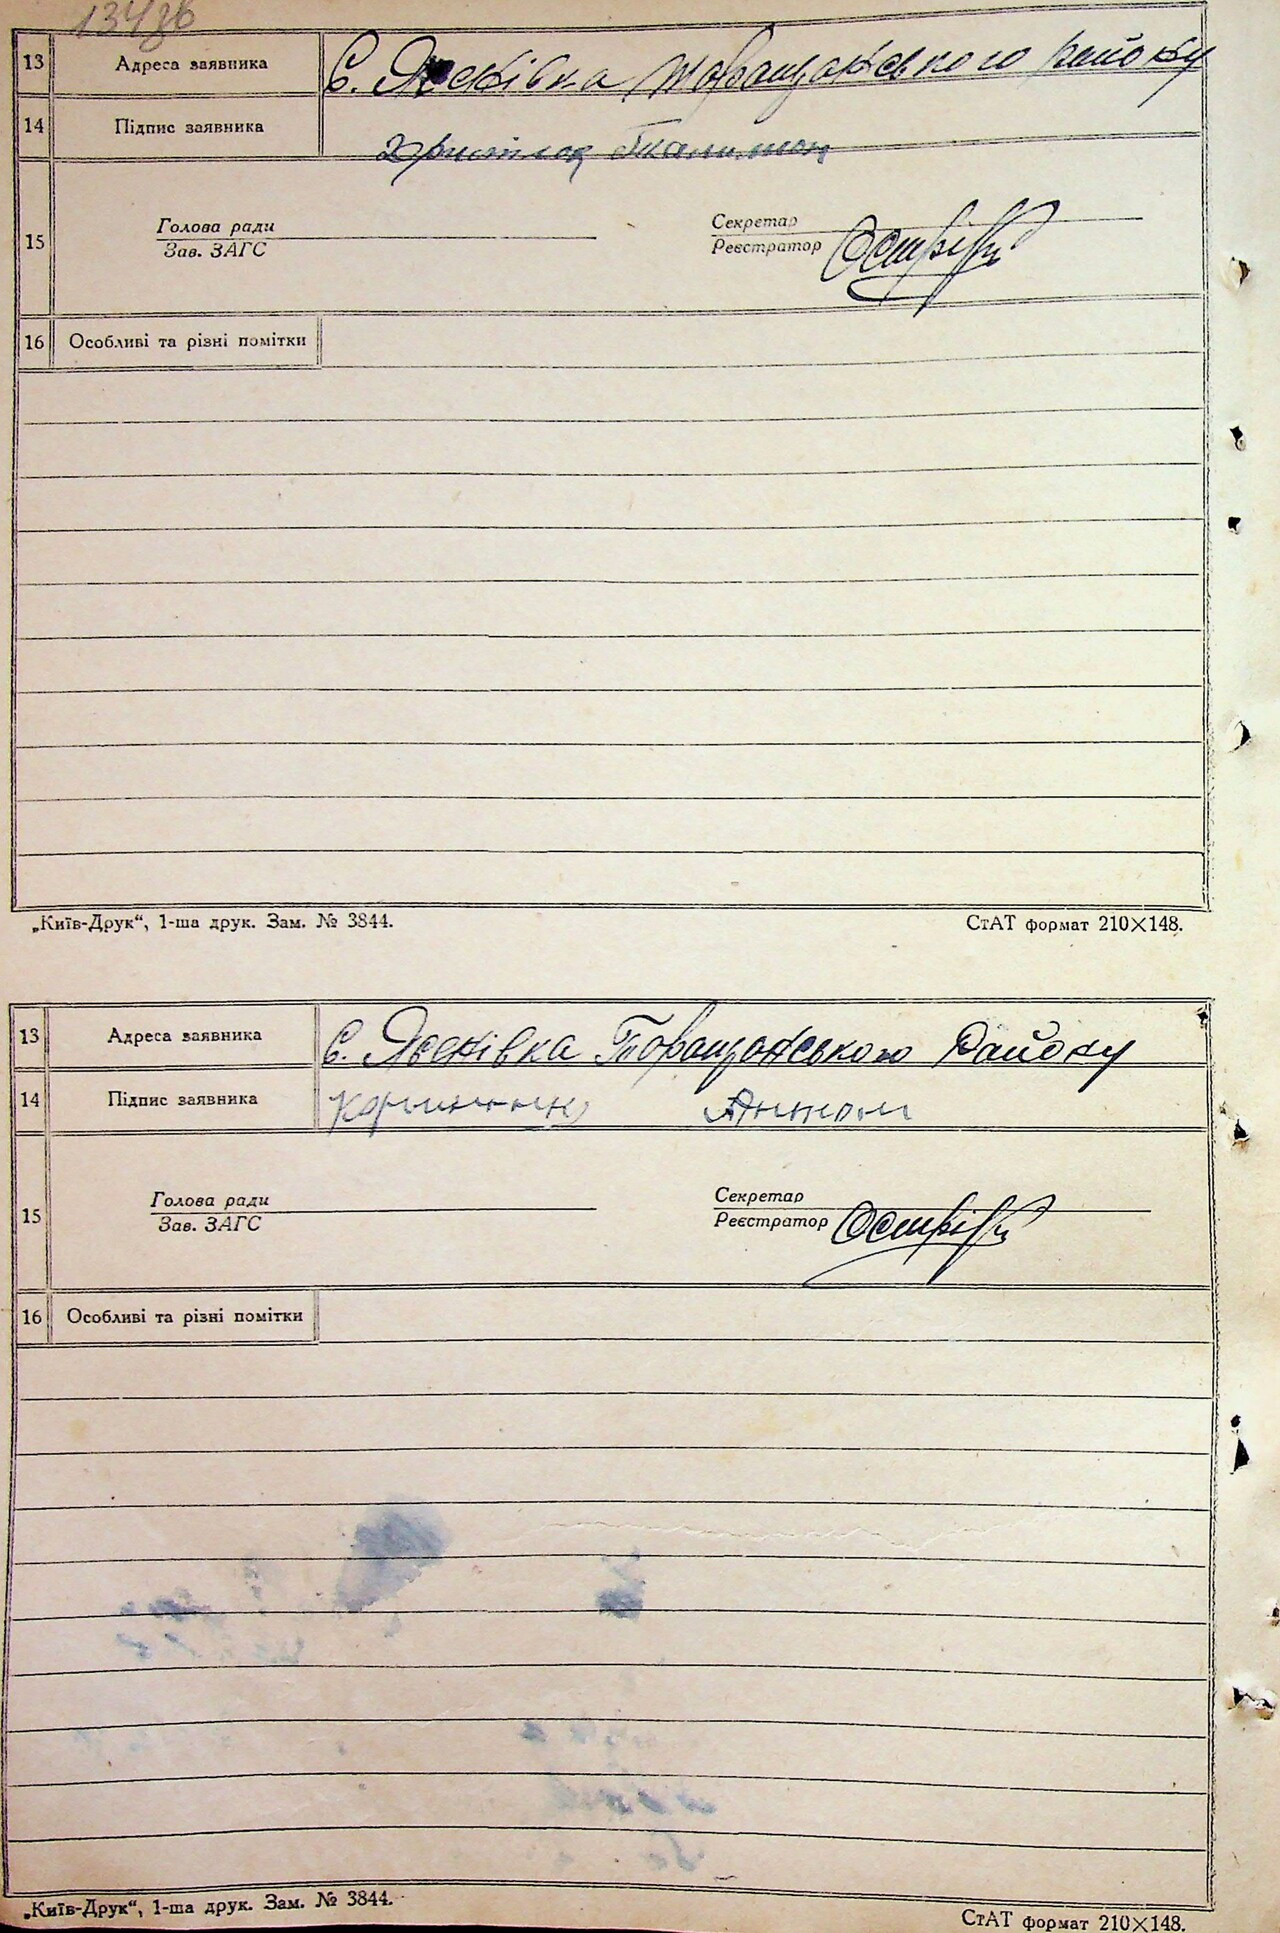 134зв
13 Адреса заявника С. Ясенівка Торащанського району
14 Підпис заявника
15 Голова ради Секретар
Зав. ЗАГС Реєстратор
16 Особливі та різні помітки
„Київ-Друк“, 1-ша друк. Зам. № 3844. СтАТ формат 210×148.
13 Адреса заявника С. Ясенівка Торащанського Району
14 Підпис заявника Антон
15 Голова ради Секретар
Зав. ЗАГС Реєстратор
16 Особливі та різні помітки
„Київ-Друк“, 1-ша друк. Зам. № 3844. СтАТ формат 210×148.